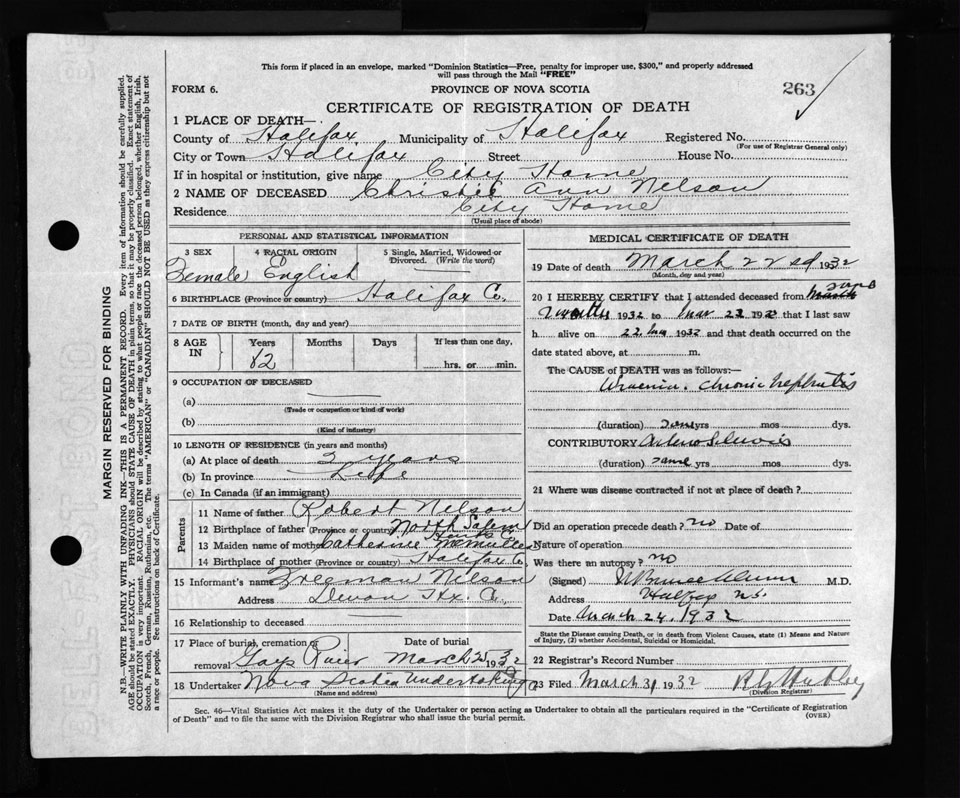 This form if placed in an envelope, marked "Dominion Statistics—Free, penalty for improper use, $300," and properly addressed
will pass through the Mail "FREE"
FORM 6. PROVINCE OF NOVA SCOTIA 263
CERTIFICATE OF REGISTRATION OF DEATH
1 PLACE OF DEATH—
County of Halifax Municipality of Halifax Registered No.
(For use of Registrar General only)
City or Town Halifax Street House No.
If in hospital or institution, give name City Home
2 NAME OF DECEASED Christie Ann Nelson
Residence City Home
(Usual place of abode)
PERSONAL AND STATISTICAL INFORMATION
3 SEX 4 RACIAL ORIGIN 5 Single, Married, Widowed or
Divorced. (Write the word)
Female English
6 BIRTHPLACE (Province or country) Halifax Co.
7 DATE OF BIRTH (month, day and year)
8 AGE IN Years Months Days If less than one day,
82 hrs. or min.
9 OCCUPATION OF DECEASED
(a)
(Trade or occupation or kind of work)
(b)
(Kind of industry)
10 LENGTH OF RESIDENCE (in years and months)
(a) At place of death 2 years
(b) In province Life
(c) In Canada (if an immigrant)
Parents
11 Name of father Robert Nelson
12 Birthplace of father (Province or country) North Salem
Hants Co
13 Maiden name of mother Catherine McMullen
14 Birthplace of mother (Province or country) Halifax Co.
15 Informant's name Freeman Nelson
Address Devon Hx. Co.,
16 Relationship to deceased
17 Place of burial, cremation or Date of burial
removal Gays River March 25 1932
18 Undertaker Nova Scotia Undertaking Co
(Name and address)
MEDICAL CERTIFICATE OF DEATH
19 Date of death March 22nd 1932
(Month, day and year)
20 I HEREBY CERTIFY that I attended deceased from
1932 to Mar 22 1932 that I last saw
h alive on 22 1932 and that death occurred on the
date stated above, at m.
The CAUSE of DEATH was as follows:—
Uraemia. Chronic Nephritis
(duration) yrs mos dys.
CONTRIBUTORY Arterio Sclerosis
(duration) same yrs mos. dys.
21 Where was disease contracted if not at place of death?
Did an operation precede death? no Date of
Nature of operation
Was there an autopsy? no
(Signed) M.D.
Address Halifax N.S.
Date March 24, 1932
State the Disease causing Death, or in death from Violent Causes, state (1) Means and Nature
of Injury, (2) whether Accidental, Suicidal or Homicidal.
22 Registrar's Record Number
23 Filed March 31 1932
(Division Registrar)
Sec. 46—Vital Statistics Act makes it the duty of the Undertaker or person acting as Undertaker to obtain all the particulars required in the "Certificate of Registration
of Death" and to file the same with the Division Registrar who shall issue the burial permit. (OVER)
MARGIN RESERVED FOR BINDING
N.B.—WRITE PLAINLY WITH UNFADING INK—THIS IS A PERMANENT RECORD. Every item of information should be carefully supplied.
AGE should be stated EXACTLY. PHYSICIANS should STATE CAUSE OF DEATH in plain terms, so that it may be properly classified. Exact statement of
OCCUPATION is very important. RACIAL ORIGIN will be described by stating to what people or race the deceased person belonged, whether English, Irish,
Scotch, French, German, Russian, Ruthenian, etc. The terms "AMERICAN" or "CANADIAN" SHOULD NOT BE USED as they express citizenship but not
a race or people. See instructions on back of Certificate.